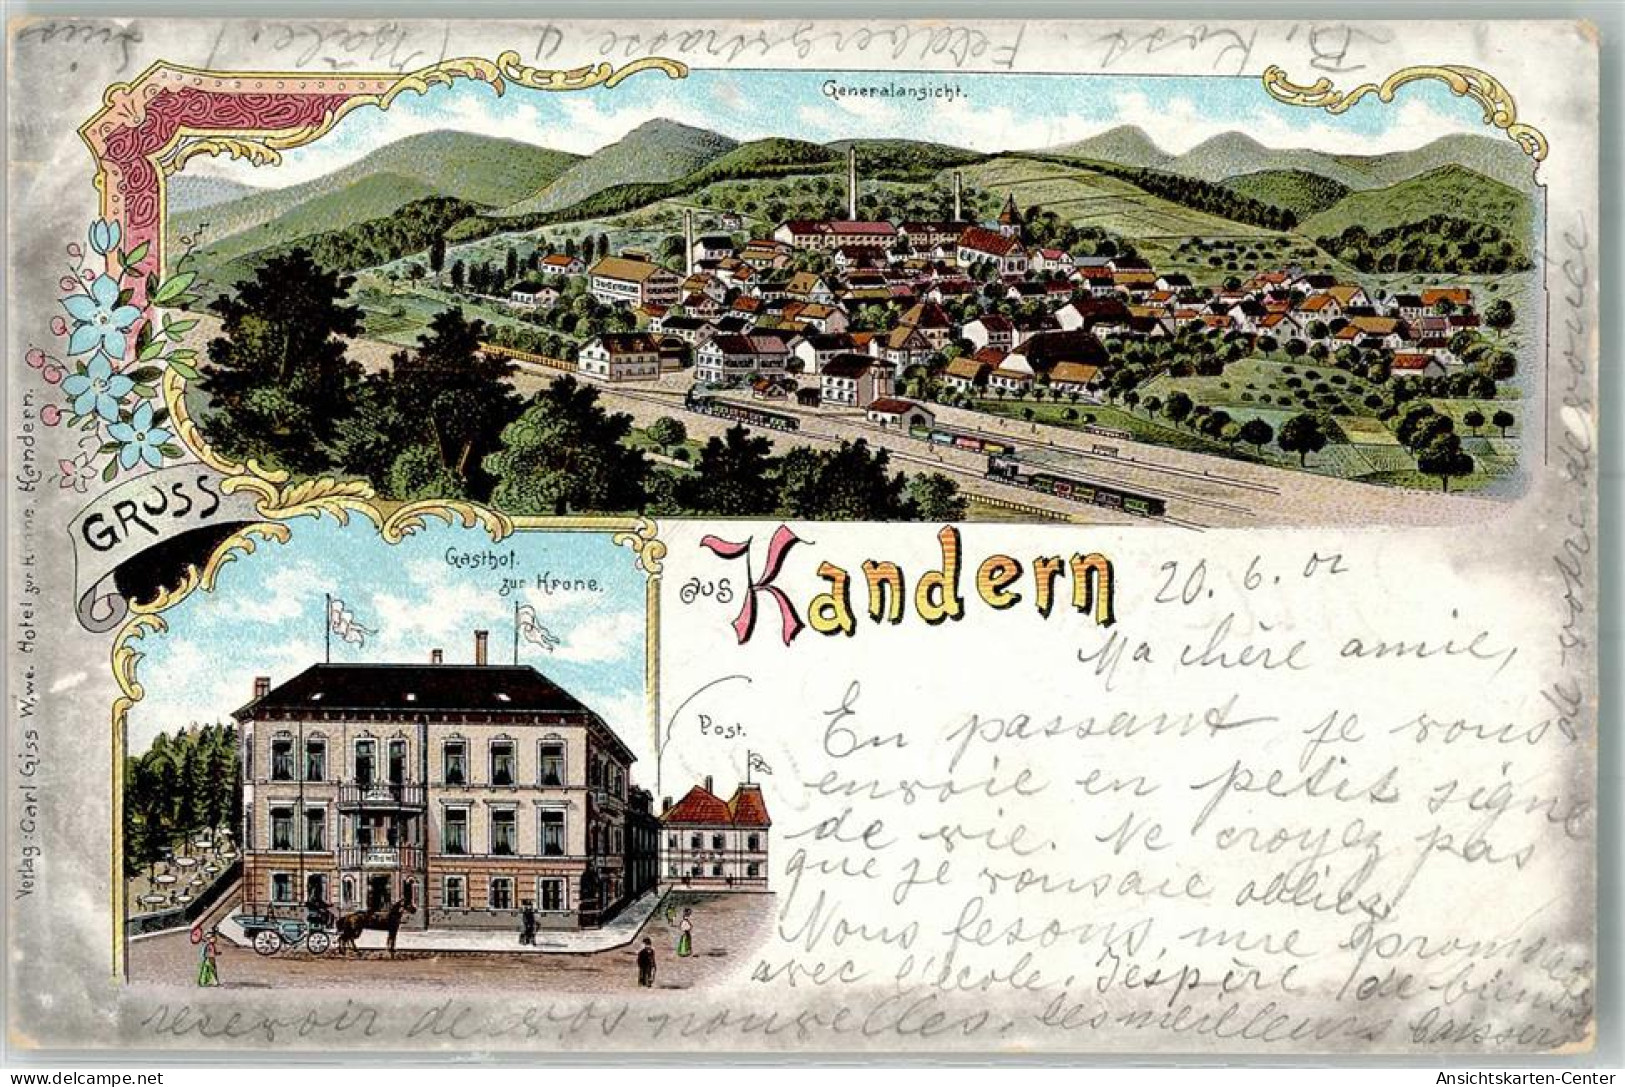 B. Kast. Feldbergstrasse 4
Bâle.
Generalansicht.
GRUSS
aus Kandern
Gasthof.
zur Krone.
Post.
KRONE
Verlag: Carl Giss Wwe. Hotel zur Krone Kandern.
20. 6. 02
Ma chère amie,
En passant je vous
envoie en petit signe
de vie. Ne croyez pas
que je vous aie obliez
Nous fesons une promenade
avec l'école. J'espère de bientôt
recevoir de vos nouvelles. Les meilleurs baisers
de votre dévouée
Ansichtskarten-Center
delcampe.net